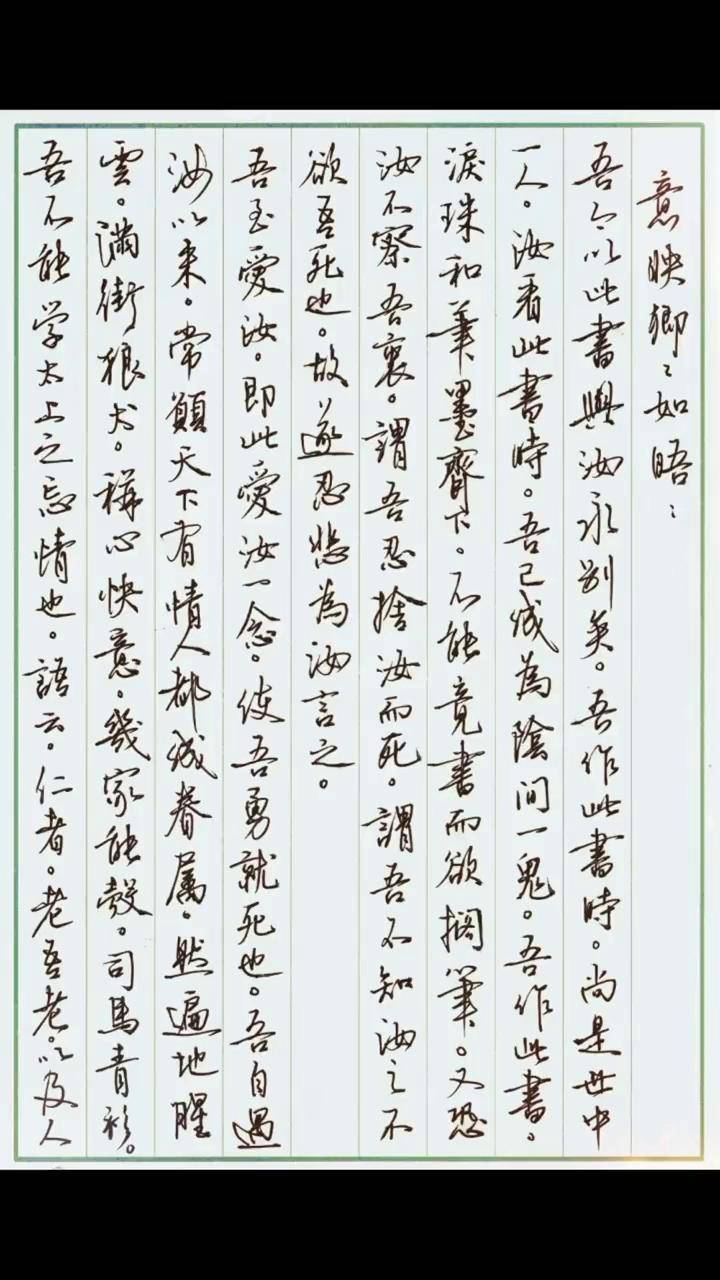 意映卿卿如晤：
吾今以此書與汝永别矣。吾作此書時。尚是世中
一人。汝看此書時。吾已成為陰間一鬼。吾作此書。
淚珠和筆墨齊下。不能竟書而欲擱筆。又恐
汝不察吾衷。謂吾忍捨汝而死。謂吾不知汝之不
欲吾死也。故遂忍悲為汝言之。
吾至愛汝。即此愛汝一念。使吾勇就死也。吾自遇
汝以来。常願天下有情人都成眷属。然遍地腥
雲。满街狼犬。稱心快意。幾家能彀。司馬青衫。
吾不能学太上之忘情也。語云。仁者。老吾老。以及人